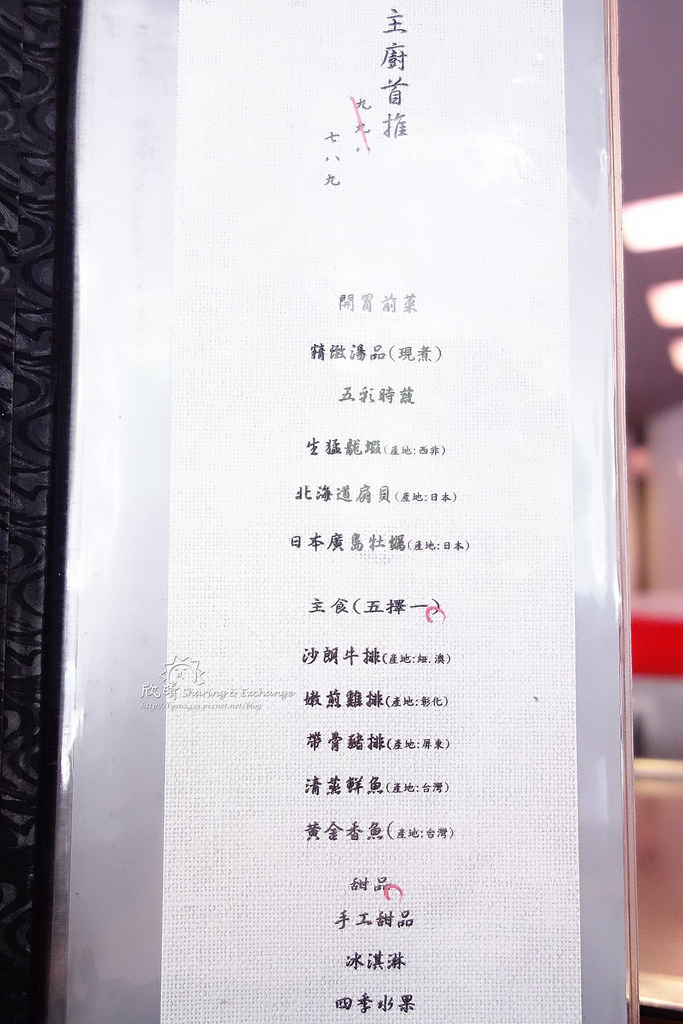 主廚首推
九九八
七八九
開胃前菜
精緻湯品(現煮)
五彩時蔬
生猛龍蝦(產地:西非)
北海道扇貝(產地:日本)
日本廣島牡蠣(產地:日本)
主食(五擇一)
沙朗牛排(產地:紐.澳)
嫩煎雞排(產地:彰化)
帶骨豬排(產地:屏東)
清蒸鮮魚(產地:台灣)
黃金香魚(產地:台灣)
甜品
手工甜品
冰淇淋
四季水果
欣晴 Sharing & Exchange